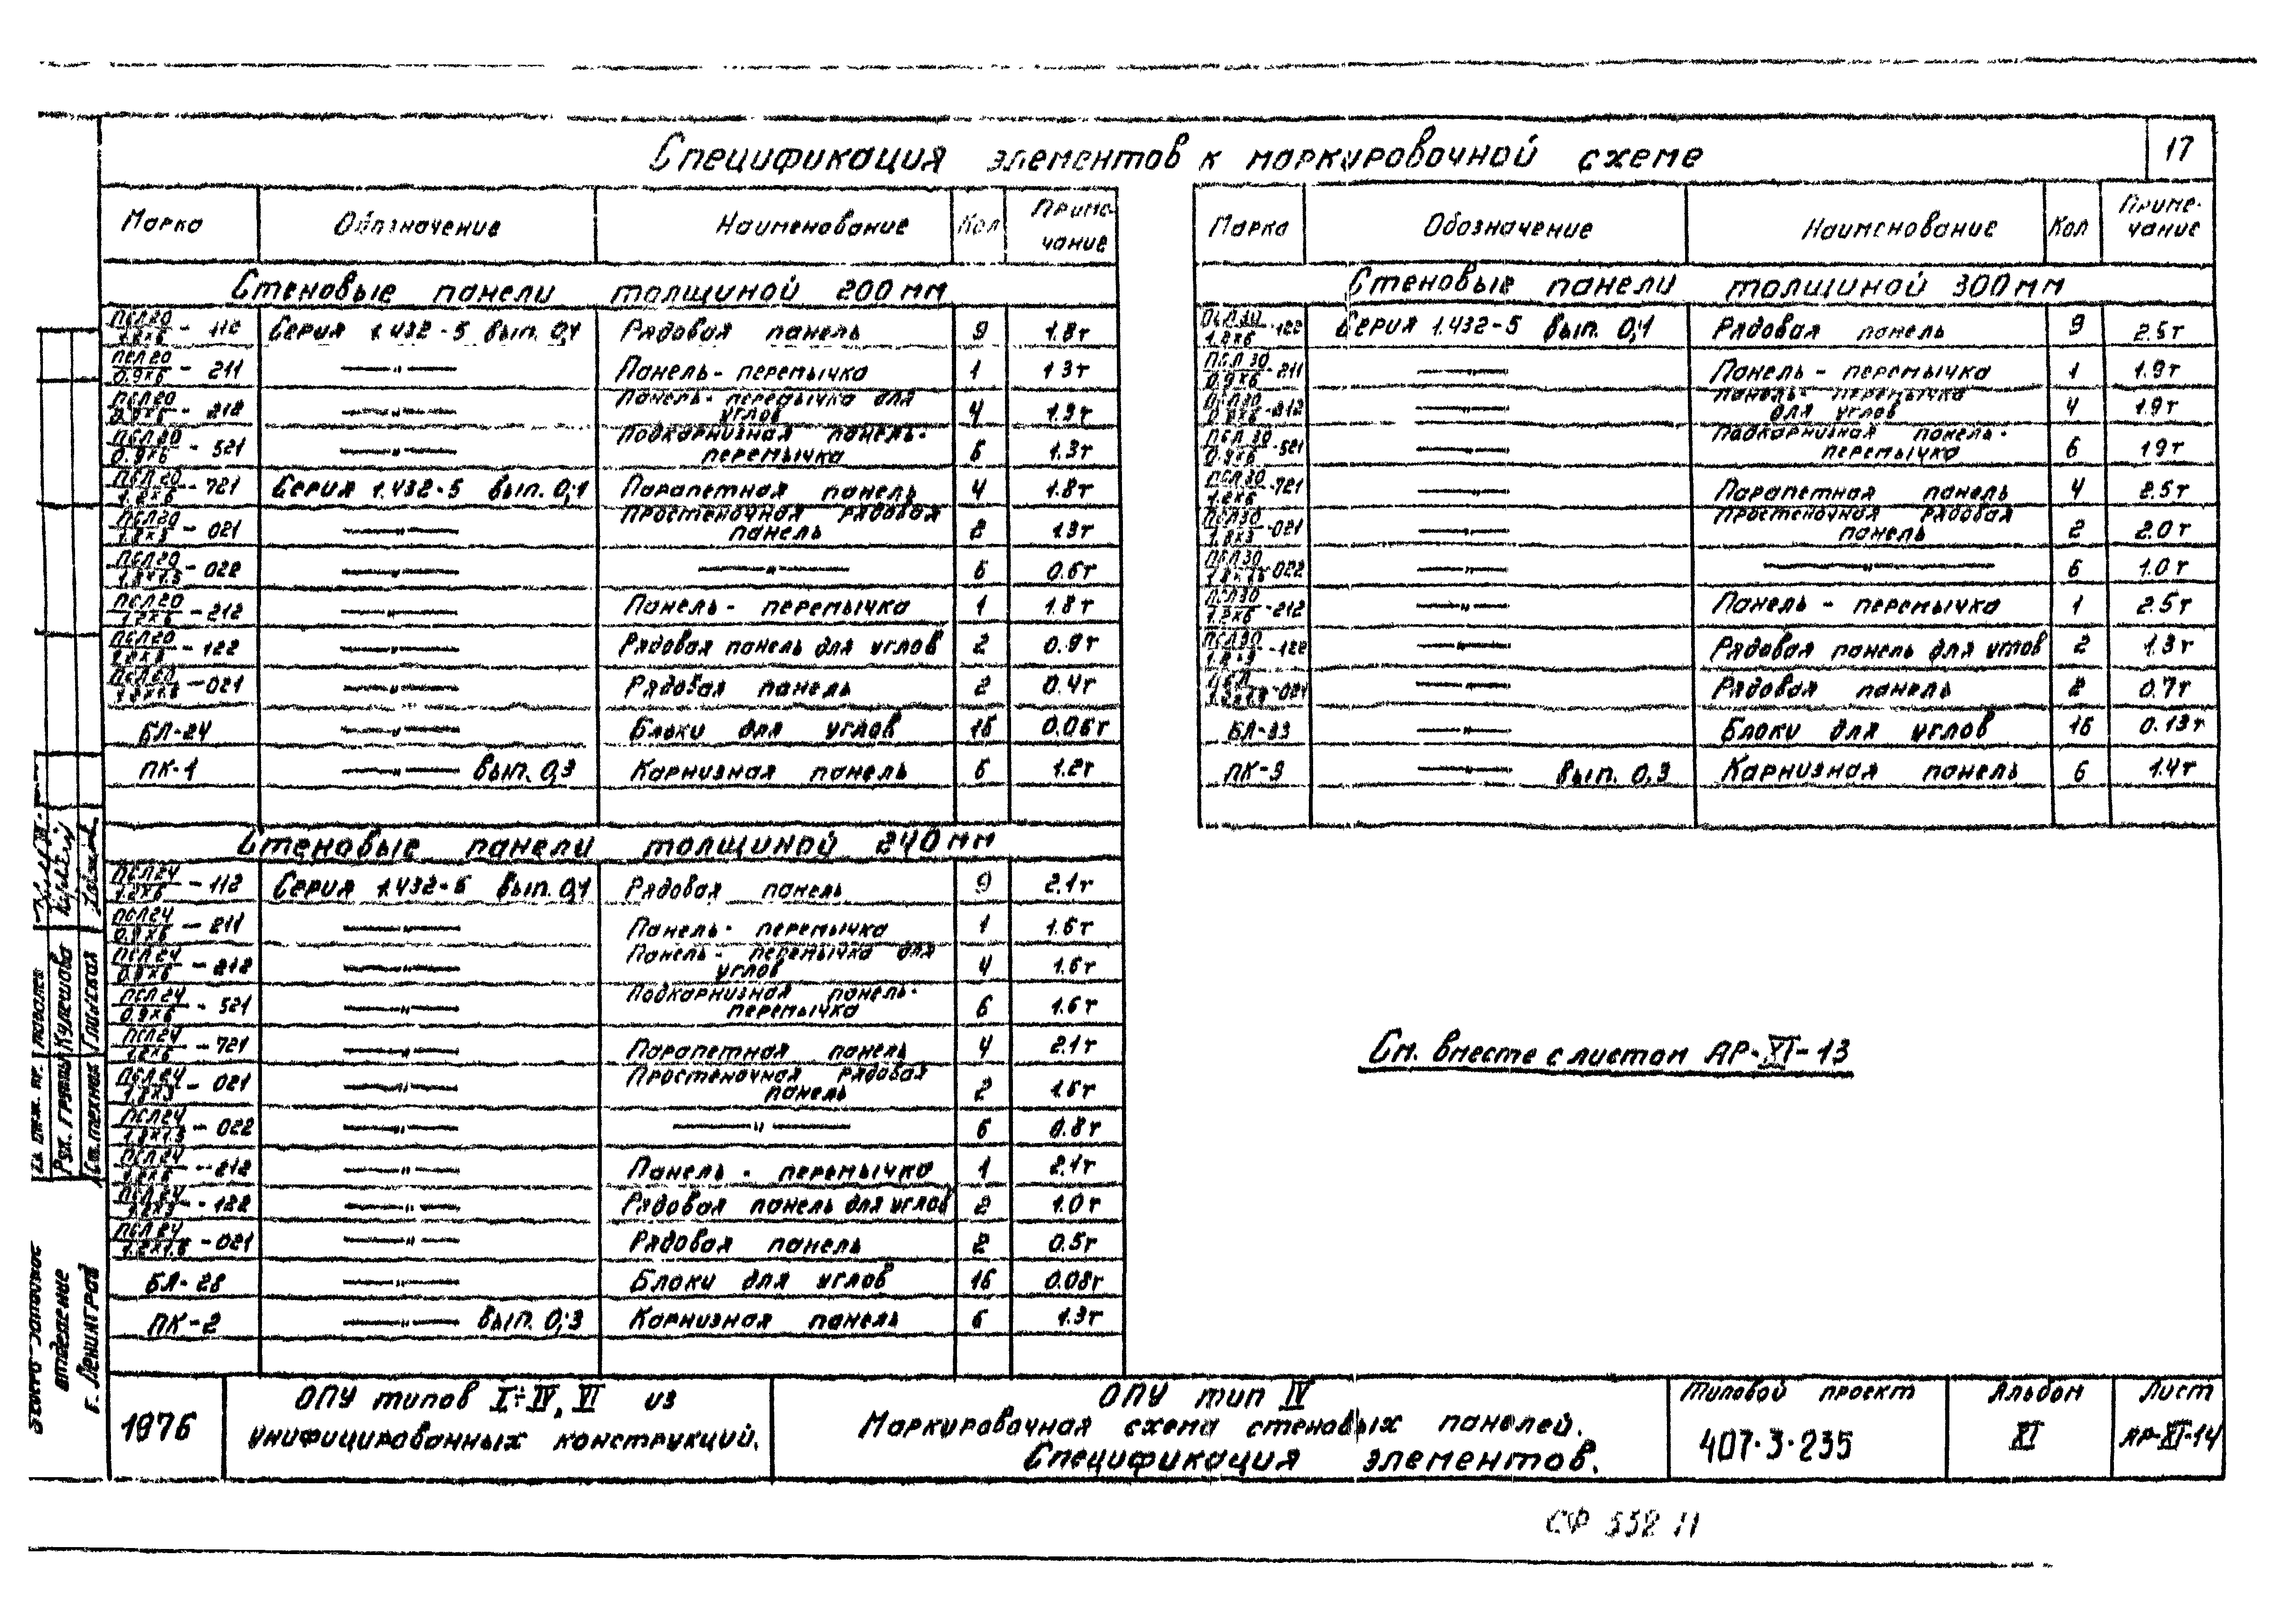 17
Спецификация элементов к маркировочной схеме
Марка Обозначение Наименование Кол Приме-
чание
Стеновые панели толщиной 200 мм
ПСЛ20
1.2×6 - 112 Серия 1.432-5 вып. 0,1 Рядовая панель 9 1.8т
ПСЛ20
0.9×6 - 211 —"— Панель-перемычка 1 1.3т
ПСЛ20
0.9×6 - 212 —"— Панель-перемычка для
углов 4 1.3т
ПСЛ20
0.9×6 - 521 —"— Подкарнизная панель-
перемычка 6 1.3т
ПСЛ20
1.2×6 - 721 Серия 1.432-5 вып. 0,1 Парапетная панель 4 1.8т
ПСЛ20
- 021 —"— Простеночная рядовая
панель 2 1.3т
ПСЛ20
- 022 —"— —"— 6 0.6т
ПСЛ20
1.2×6 - 212 —"— Панель-перемычка 1 1.8т
ПСЛ20
- 122 —"— Рядовая панель для углов 2 0.9т
ПСЛ20
- 021 —"— Рядовая панель 2 0.4т
БЛ-24 —"— Блоки для углов 16 0.06т
ПК-1 —"— вып. 0,3 Карнизная панель 6 1.2т
Стеновые панели толщиной 240 мм
ПСЛ24
1.2×6 - 112 Серия 1.432-5 вып. 0,1 Рядовая панель 9 2.1т
ПСЛ24
0.9×6 - 211 —"— Панель-перемычка 1 1.6т
ПСЛ24
0.9×6 - 212 —"— Панель-перемычка для
углов 4 1.6т
ПСЛ24
0.9×6 - 521 —"— Подкарнизная панель-
перемычка 6 1.6т
ПСЛ24
1.2×6 - 721 —"— Парапетная панель 4 2.1т
ПСЛ24
- 021 —"— Простеночная рядовая
панель 2 1.6т
ПСЛ24
- 022 —"— —"— 6 0.8т
ПСЛ24
1.2×6 - 212 —"— Панель-перемычка 1 2.1т
ПСЛ24
1.2×3 - 122 —"— Рядовая панель для углов 2 1.0т
ПСЛ24
- 021 —"— Рядовая панель 2 0.5т
БЛ-28 —"— Блоки для углов 16 0.08т
ПК-2 —"— вып. 0,3 Карнизная панель 6 1.3т
Марка Обозначение Наименование Кол Приме-
чание
Стеновые панели толщиной 300 мм
ПСЛ30
1.2×6 -122 Серия 1.432-5 вып. 0,1 Рядовая панель 9 2.5т
ПСЛ30
0.9×6 -211 —"— Панель-перемычка 1 1.9т
ПСЛ30
0.9×6 -212 —"— Панель-перемычка
для углов 4 1.9т
ПСЛ30
0.9×6 -521 —"— Подкарнизная панель-
перемычка 6 1.9т
ПСЛ30
1.2×6 -721 —"— Парапетная панель 4 2.5т
ПСЛ30
-021 —"— Простеночная рядовая
панель 2 2.0т
ПСЛ30
-022 —"— —"— 6 1.0т
ПСЛ30
1.2×6 -212 —"— Панель-перемычка 1 2.5т
ПСЛ30
-122 —"— Рядовая панель для углов 2 1.3т
-021 —"— Рядовая панель 2 0.7т
БЛ-33 —"— Блоки для углов 16 0.13т
ПК-3 —"— вып. 0,3 Карнизная панель 6 1.4т
См. вместе с листом АР-XI-13
Рук. группы Кулешова
Ст.техник
отделение
г. Ленинград
1976
ОПУ типов I÷IV, VI из
унифицированных конструкций.
ОПУ тип IV
Маркировочная схема стеновых панелей.
Спецификация элементов.
Типовой проект
407-3-235
Альбом
XI
Лист
АР-XI-14